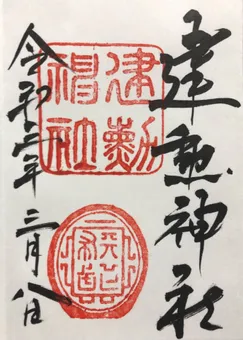 建勲神社
建勲神社
令和二年三月八日